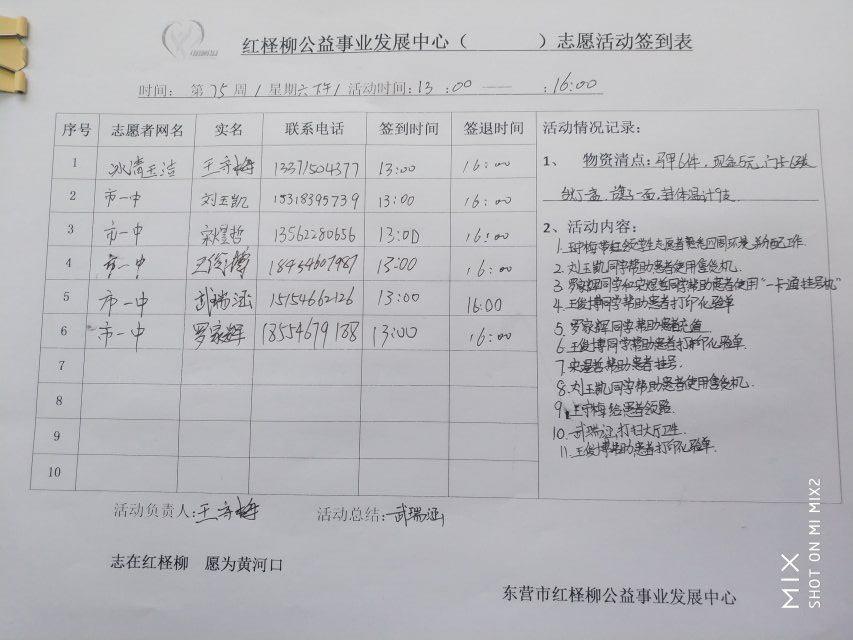 红柽柳公益事业发展中心（ ）志愿活动签到表
时间： 第 75 周 / 星期六下午 / 活动时间：13 :00 —— :16:00
序号 志愿者网名 实名 联系电话 签到时间 签退时间
1 冰清玉洁 王守梅 13371504377 13:00 16:00
2 市一中 刘玉凯 15318395739 13:00 16:00
3 市一中 宋煜哲 13562280656 13:00 16:00
4 市一中 王俊博 18454607987 13:00 16:00
5 市一中 武瑞涵 15154662126 13:00 16:00
6 市一中 罗家辉 18554679188 13:00 16:00
7
8
9
10
活动情况记录：
1、 物资清点：马甲6件，现金5元，门卡6张
旗子一面，体温计9支
2、活动内容：
1.王守梅带红领学生志愿者熟悉四周环境，分配工作.
2.刘玉凯同学帮助患者使用售货机.
3.罗家辉同学和宋煜哲同学帮助患者使用“一卡通挂号机”
4.王俊博同学帮助患者打印化验单
5.罗家辉同学帮助患者充值
6.王俊博同学帮助患者打印化验单.
7.宋煜哲帮助患者挂号
8.刘玉凯同学帮助患者使用售货机.
9.王守梅给患者领路.
10.武瑞涵打扫大厅卫生.
11.王俊博帮助患者打印化验单.
活动负责人：王守梅 活动总结：武瑞涵
志在红柽柳 愿为黄河口
东营市红柽柳公益事业发展中心
MIX
SHOT ON MI MIX2